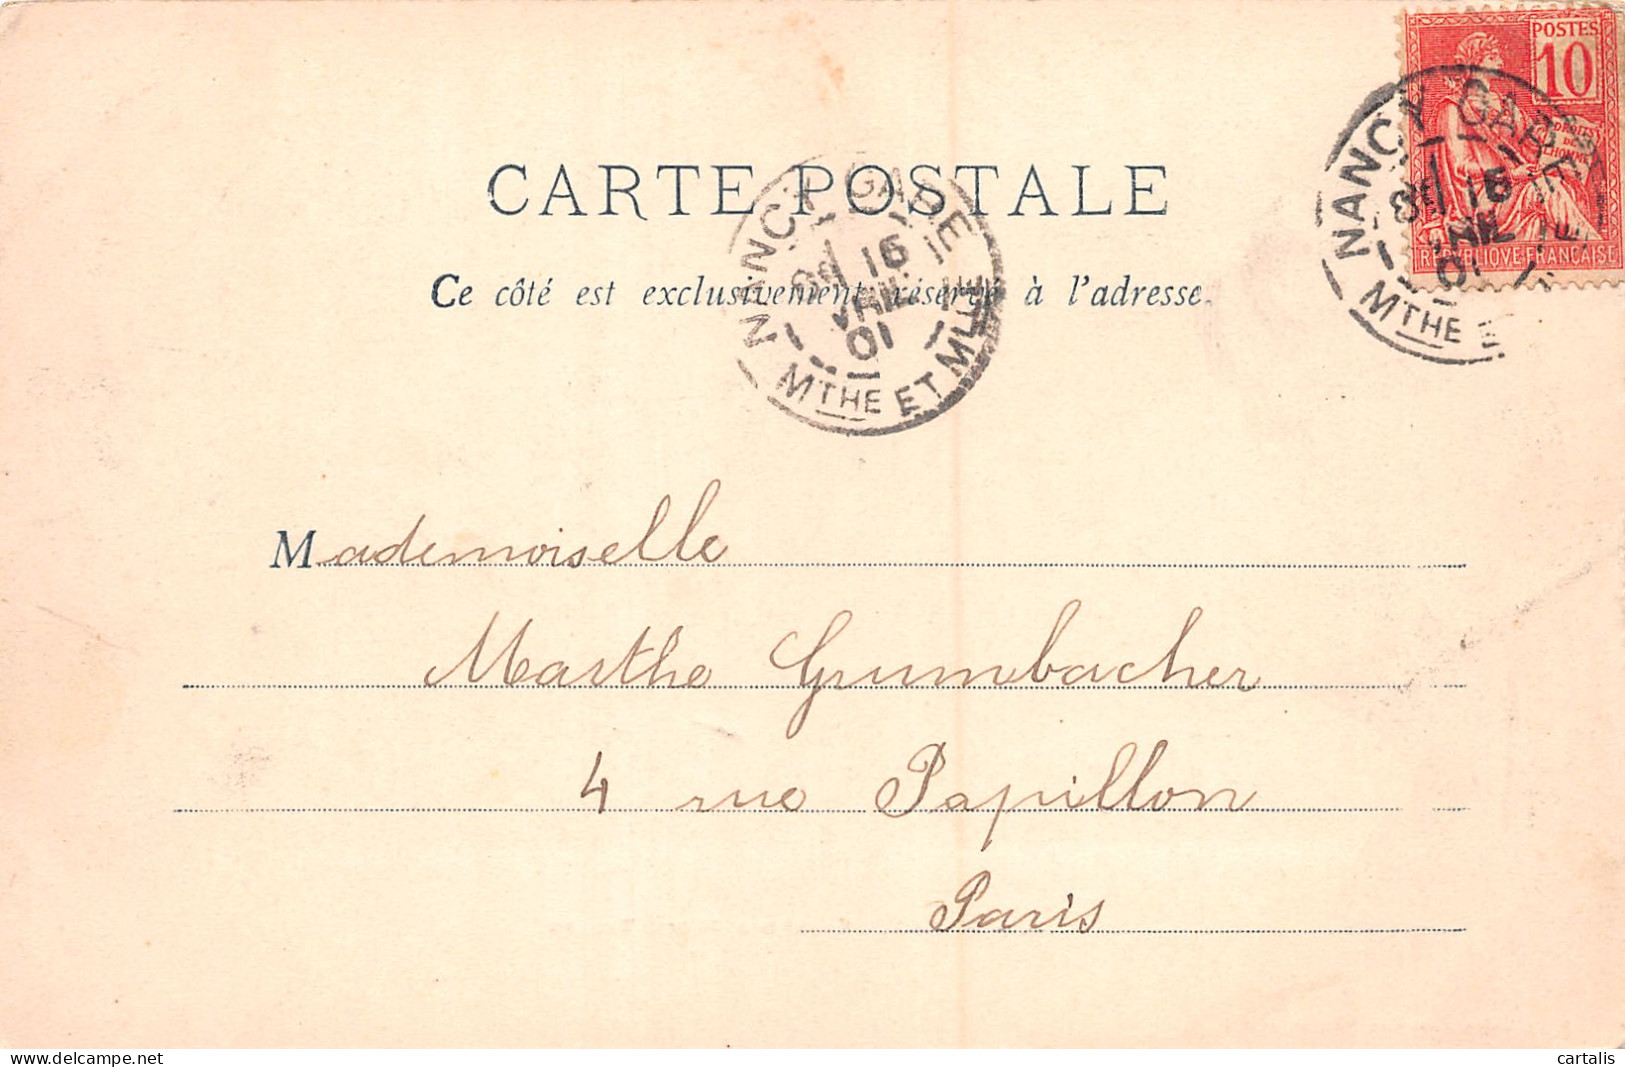 POSTES
10
DROITS
DE
L'HOMME
REPUBLIQUE FRANÇAISE
NANCY GARE
16
01
MTHE E
CARTE POSTALE
NANCY GARE
16
AVRIL
01
MTHE ET MLLE
Ce côté est exclusivement réservé à l'adresse.
Mademoiselle
Marthe Grumbacher
4 rue Papillon
Paris
cartalis